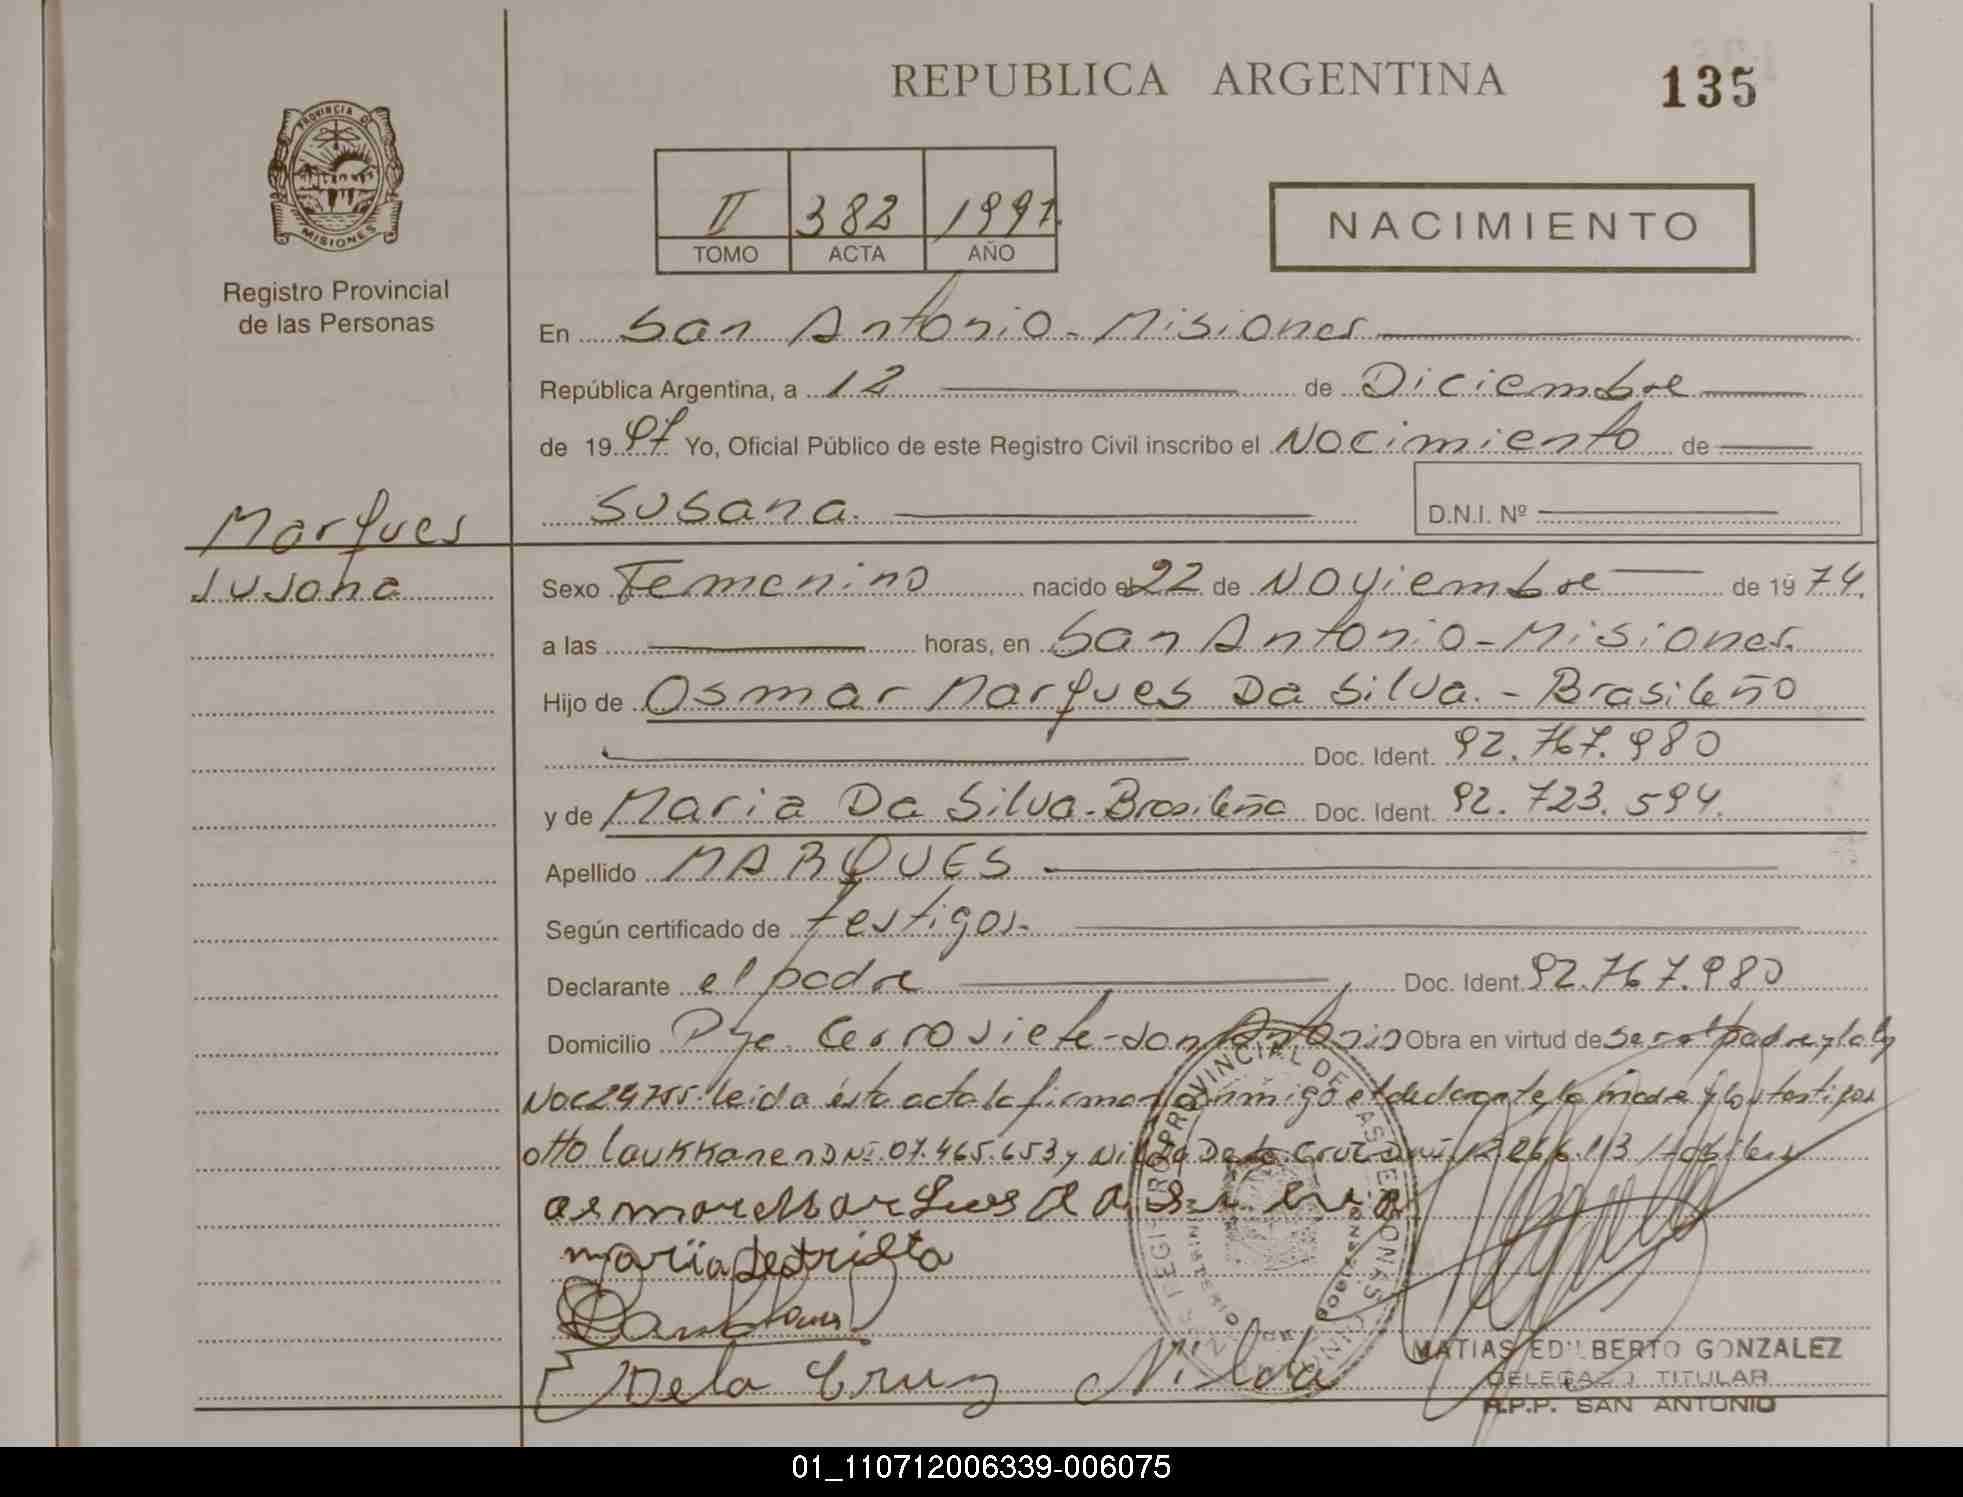 REPUBLICA ARGENTINA
135
PROVINCIA DE
MISIONES
Registro Provincial
de las Personas
II 382 1997.
TOMO ACTA AÑO
NACIMIENTO
En San Antonio - Misiones
República Argentina, a 12 de Diciembre
de 19 97 Yo, Oficial Público de este Registro Civil inscribo el Nacimiento de
Susana.
D.N.I. Nº
Marques
Susana
Sexo Femenino nacido el 22 de Noviembre de 19 74.
a las horas, en San Antonio - Misiones.
Hijo de Osmar Marques Da Silva. - Brasileño
Doc. Ident. 92.767.980
y de Maria Da Silva - Brasileña Doc. Ident. 92.723.594.
Apellido MARQUES
Según certificado de testigos.
Declarante el padre Doc. Ident. 92.767.980
Domicilio Pje. Cerro Siete - San Antonio Obra en virtud de ser el padre y la ley
Nac 24755. leida ésta acta la firman conmigo el declarante, la madre y los testigos
Otto Laukkanen DNI. 07.465.653 y Nilda De la Cruz DNI. 12.266.113
da silva
maria
De la Cruz Nilda
REGISTRO PROVINCIAL DE LAS PERSONAS
MINISTERIO DE GOBIERNO
MATIAS EDILBERTO GONZALEZ
DELEGADO TITULAR
R.P.P. SAN ANTONIO
01_110712006339-006075